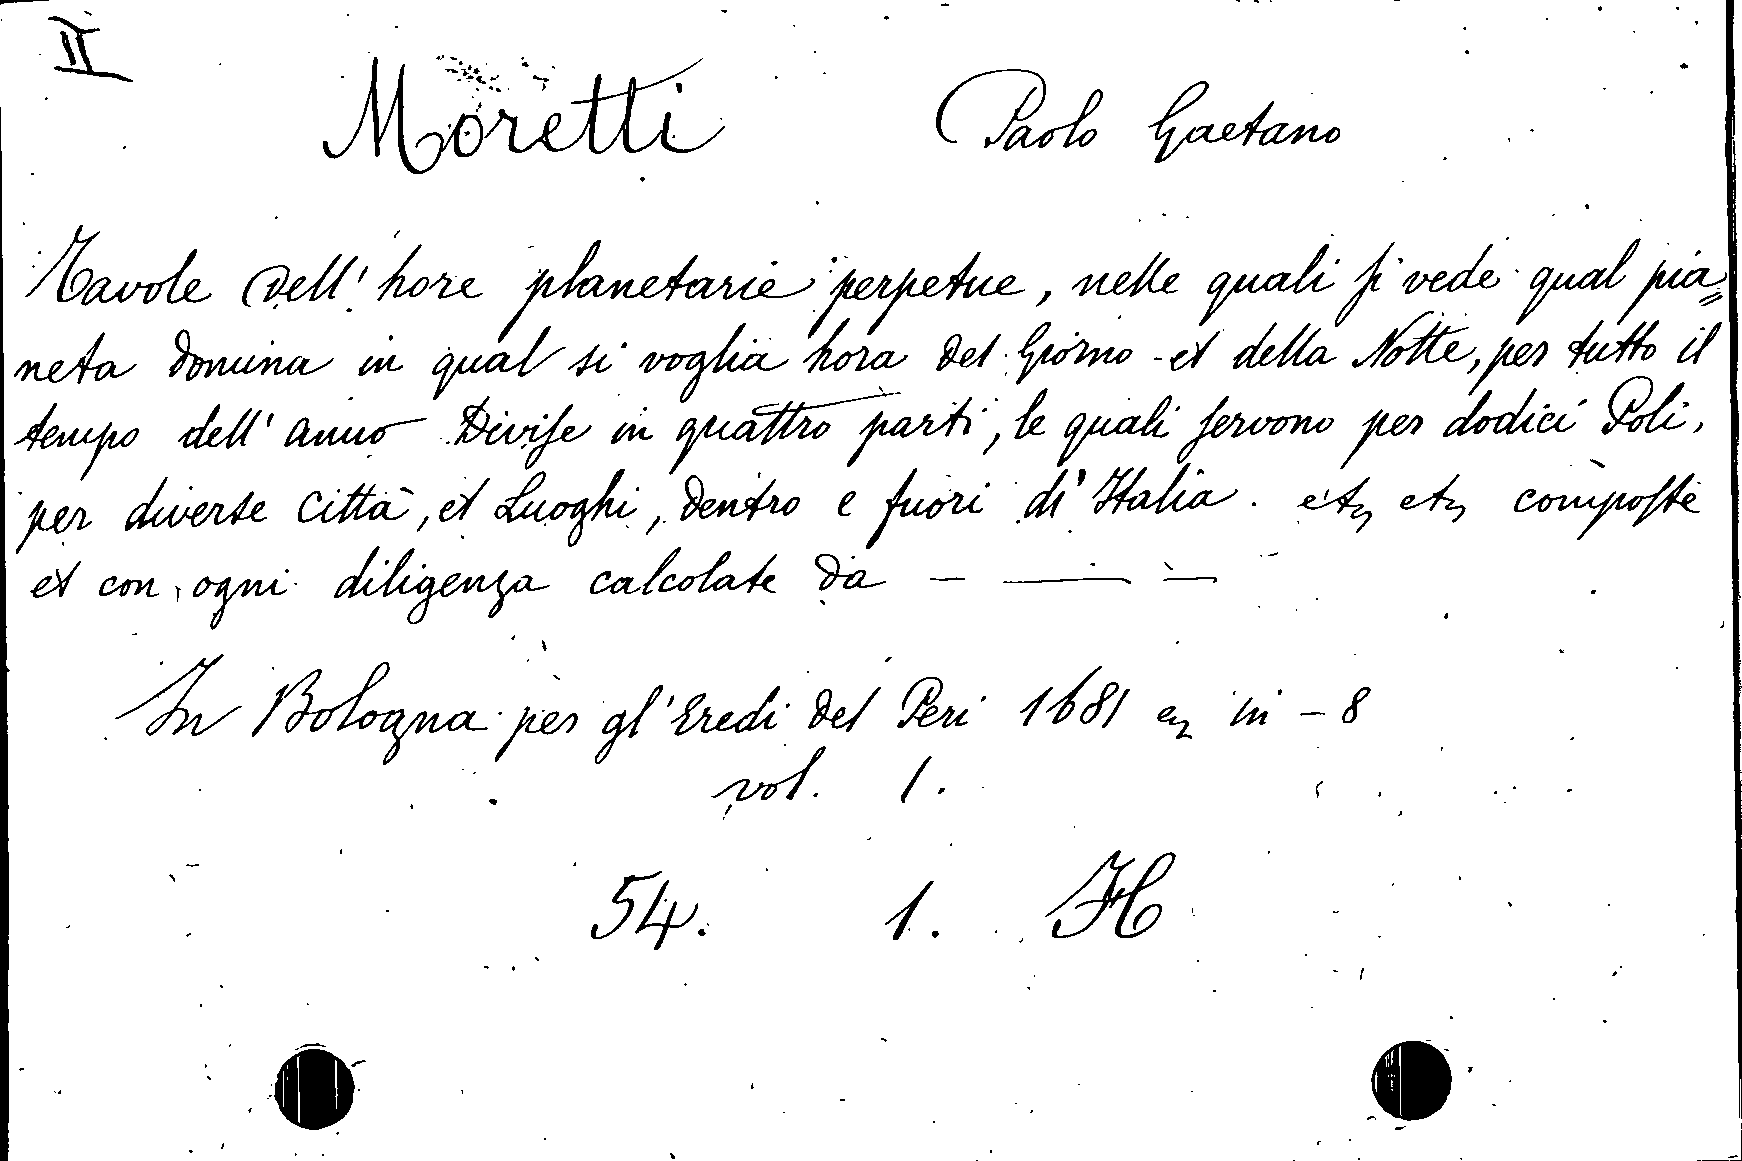 II
Moretti Paolo Gaetano
Tavole dell' hore planetarie perpetue, nelle quali ſi vede qual pia=
neta domina in qual si voglia hora del Giorno et della Notte, per tutto il
tempo dell' anno Diviſe in quattro parti, le quali ſervono per dodici Poli,
per diverse Città, et Luoghi, dentro e fuori di Italia. etc etc compoſte
et con ogni diligenza calcolate da — — —
In Bologna per gl' Eredi del Peri 1681 in - 8
vol. 1.
54. 1. H